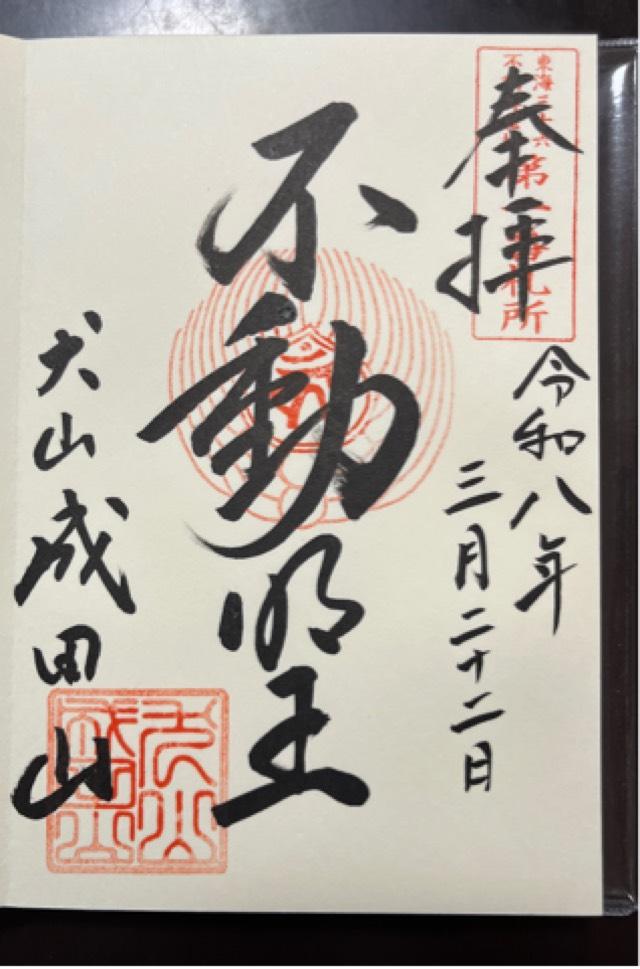 奉拝
東海三十六
不動尊霊場
第一番札所
令和八年
三月二十二日
不動明王
犬山成田山